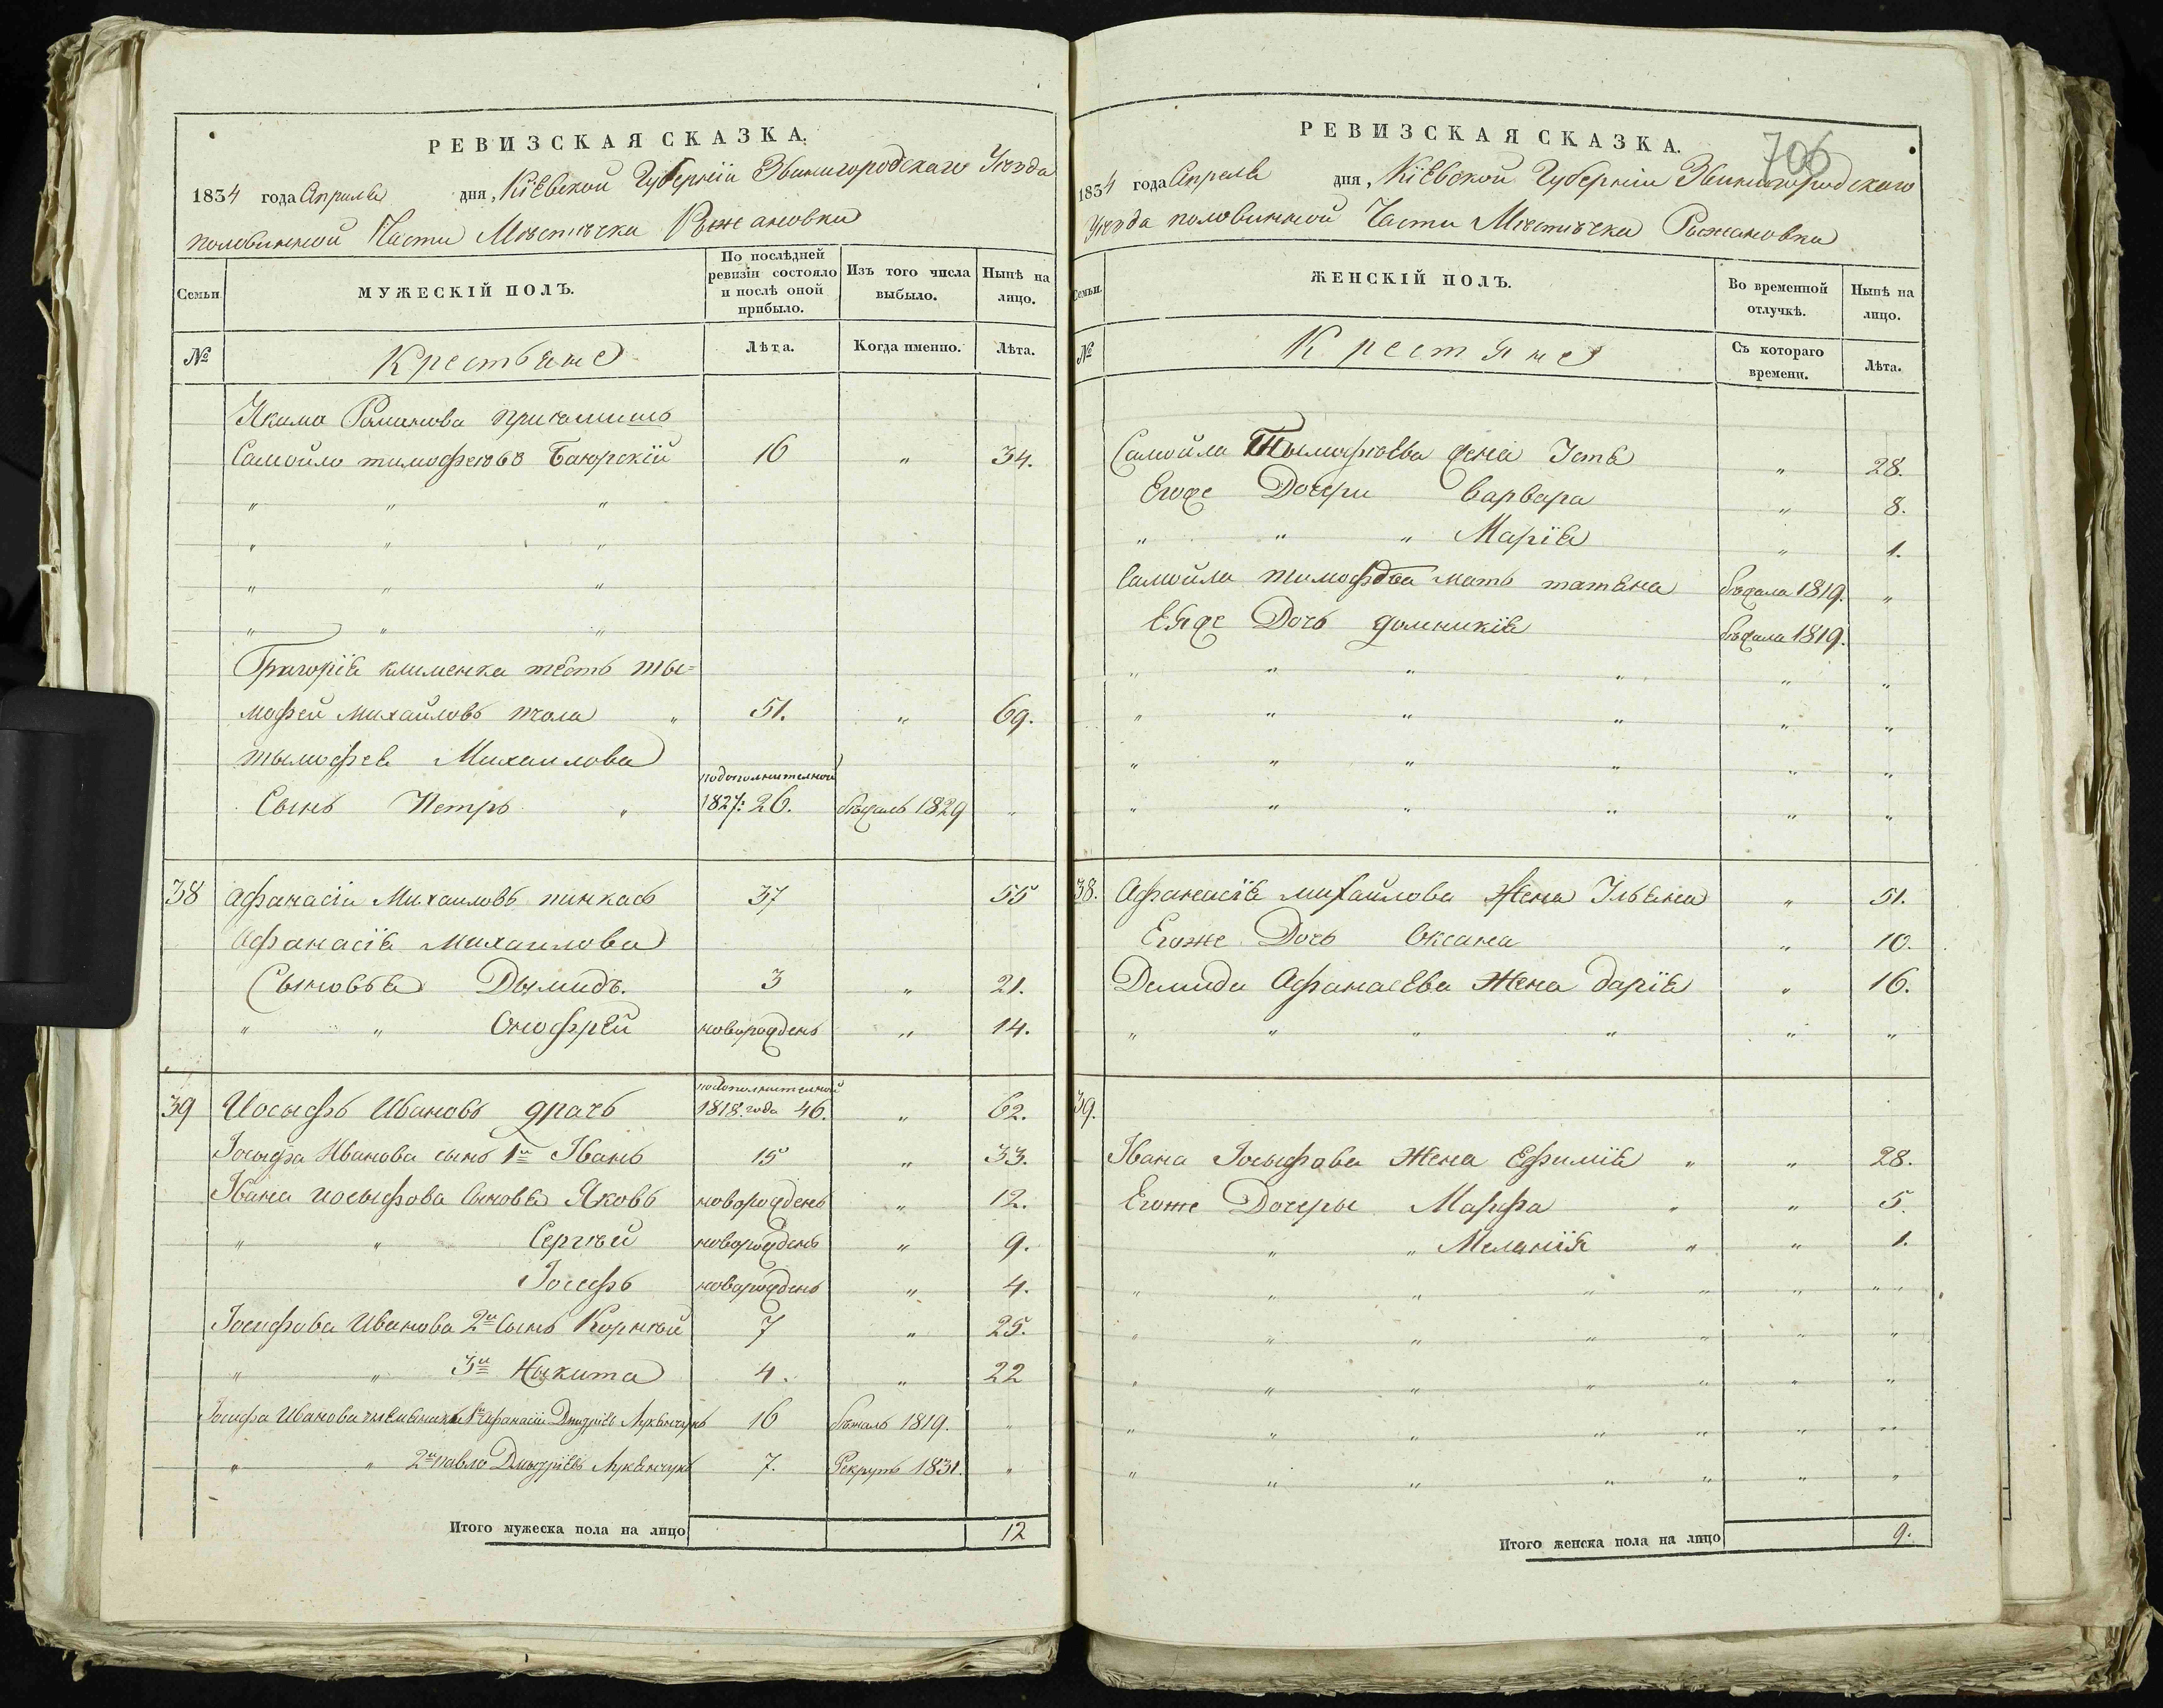 РЕВИЗСКАЯ СКАЗКА.
1834 года Апреля дня, Кіевской Губерніи Звинигородскаго Уѣзда
половинной Части Мѣстѣчка Рыжановки
Семьи. МУЖЕСКІЙ ПОЛЪ. По послѣдней ревизіи состояло и послѣ оной прибыло. Изъ того числа выбыло. Нынѣ на лицо.
№ Крестьяне Лѣта. Когда именно. Лѣта.
Якима Романова
Самойло тимофеювъ 16 " 34.
" " "
" " "
" " "
" " "
Григорія клименка тесть ты=
мофей Михайловъ " 51. " 69.
тымофея Михаилова
подополнителной
Сынъ Петръ " 1827: 26. бѣжалъ 1829 "
38 Афанасіи Михаиловъ пинкасъ 37 55
Афанасія Михаилова
Сыновья Дымидъ. 3 " 21.
" " Онофрей новорожденъ " 14.
подополнителной
39 Иосыфъ Ивановъ драчъ 1818. года 46. " 62.
Іосыфа Иванова сынъ 1й Іванъ 15 " 33.
Івана иосыфова сыновья Яковъ новорожденъ " 12.
" " Сергѣй новорожденъ " 9.
Іосифъ новорожденъ " 4.
Іосифова Иванова 2й Сынъ Корнѣй 7 " 25.
" " 3й Никита 4. " 22
Іосифа Иванова племынники 1й Афанасіи Дмитріевъ Лукянчукъ 16 бѣжалъ 1819. "
" " 2й павло Дмитріевъ Лукянчукъ 7. Рекрутъ 1831. "
Итого мужеска пола на лицо 12
РЕВИЗСКАЯ СКАЗКА.
706
1834 года Апреля дня, Кіевской Губерніи Звинигородскаго
Уѣзда половинной Части Мѣстѣчка Рыжановки
Семьи. ЖЕНСКІЙ ПОЛЪ. Во временной отлучкѣ. Нынѣ на лицо.
№ Крестяне Съ котораго времени. Лѣта.
Самойла Тымофѣева жена " 28.
Егоже Дочери варвара " 8.
" " " Марія " 1.
Самойла тимофева мать татяна бѣжала 1819. "
Еяже Дочь домникія бѣжала 1819.
" " " " " "
" " " " " "
" " " " " "
" " " " " "
38. Афанасія михайлова Жена Іляна " 51.
Егоже Дочь Оксана " 10.
Демида Афанасева Жена дарія " 16.
" " " " " "
39.
Івана Іосыфова Жена Ефимія " " 28.
Егоже Дочеры Марфа " " 5.
" " Меланія " " 1.
" " " " " " "
" " " " " " "
" " " " " " "
" " " " " " "
" " " " " " "
Итого женска пола на лицо 9.